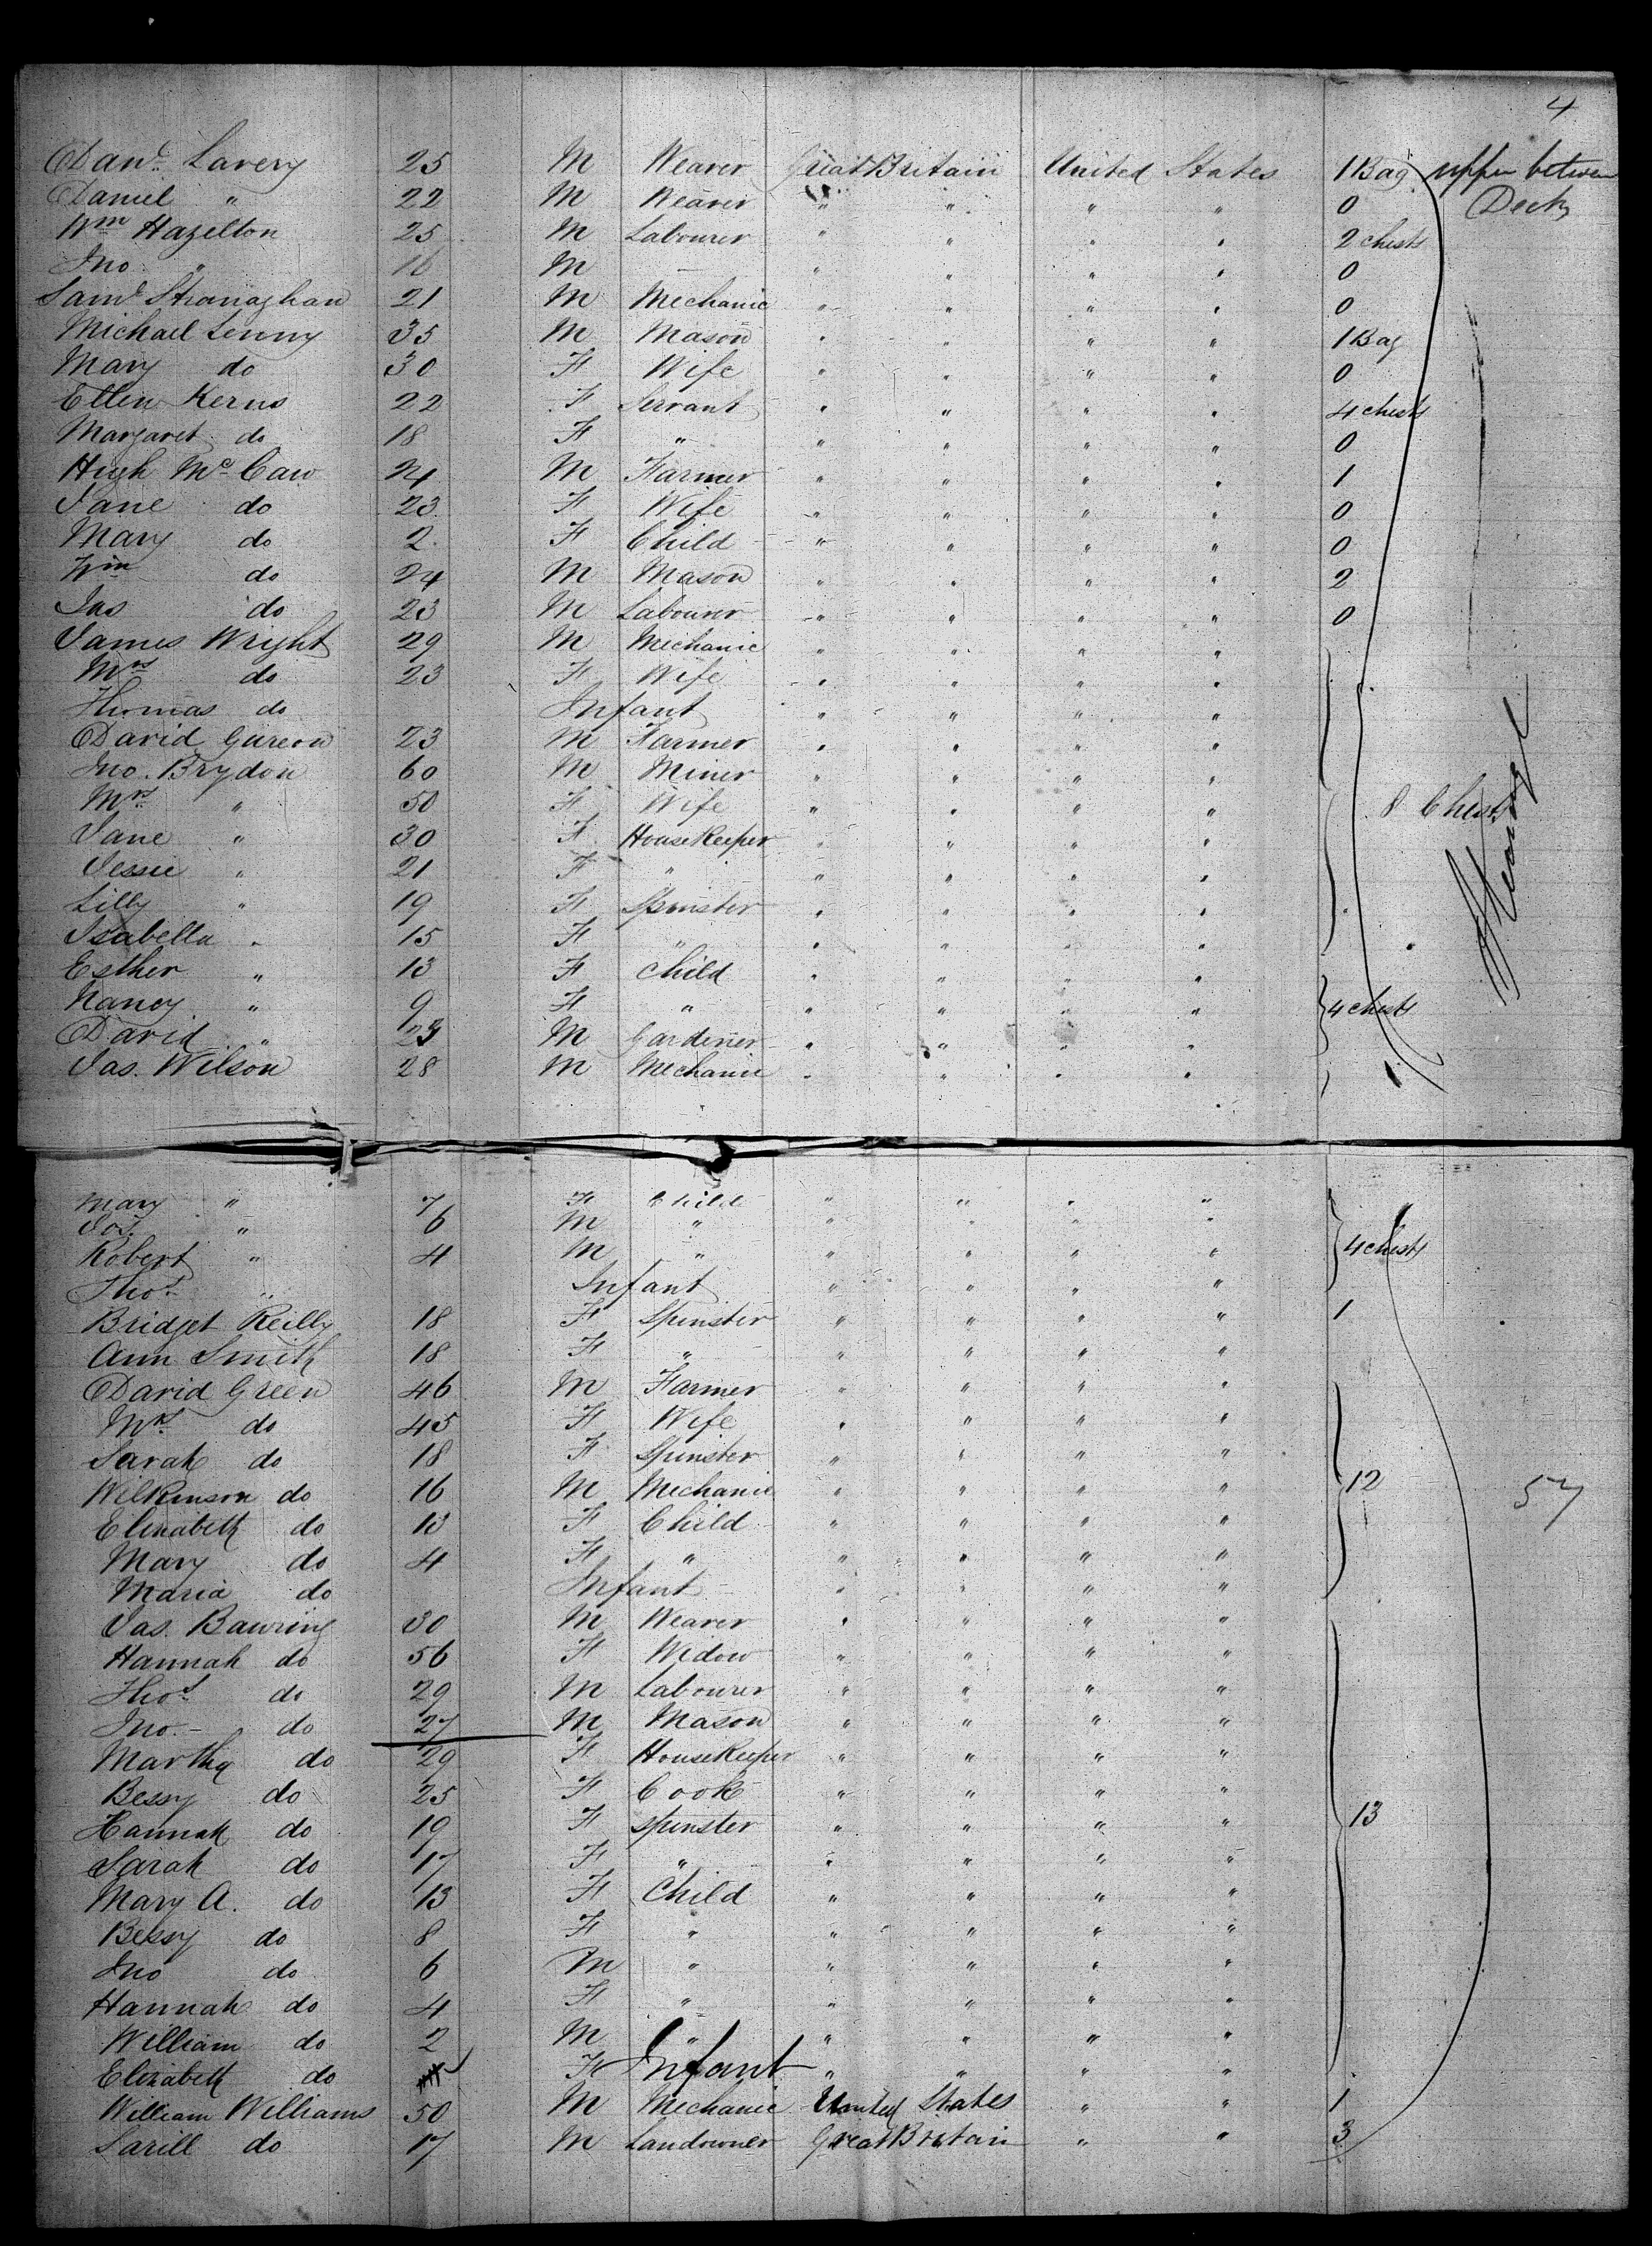 4
Dand. Lavery 25 M Weaver Great Britain United States 1 Bag upper between
Daniel " 22 M Weaver " " " " 0 Decks
Wm Hazelton 25 M Labourer " " " " 2 chests
Jno " 16 M " " " " 0
Saml Stranaghan 21 M Mechanic " " " " 0
Michael Lenny 35 M Mason " " " " 1 Bag
Mary do 30 F Wife " " " " 0
Ellen Kerns 22 F Servant " " " " 4 chests
Margaret do 18 F " " " " " 0
Hugh McCaw 24 M Farmer " " " " 1
Jane do 23 F Wife " " " " 0
Mary do 2 F Child " " " " 0
Wm do 24 M Mason " " " " 2
Jas do 23 M Labourer " " " " 0
James Wright 29 M Mechanic " " " "
Mrs do 23 F Wife " " " "
Thomas do Infant " " " "
David Gureon 23 M Farmer " " " "
Jno. Brydon 60 M Miner " " " "
Mrs " 50 F Wife " " " " 8 Chests
Jane " 30 F HouseKeeper " " " "
Jessie " 21 F " " " " "
Lilly " 19 F Spinster " " " "
Isabella " 15 F " " " " "
Esther " 13 F Child " " " "
Nancy " 9 F " " " " " 4 chests
David " 25 M Gardener " " " "
Jas. Wilson 28 M Mechanic " " " "
Mary " 7 F Child " " " "
Jos. " 6 M " " " " "
Robert " 4 M " " " " " 4 chests
Thos " Infant " " " "
Bridget Reilly 18 F Spinster " " " " 1
Ann Smith 18 F " " " " "
David Green 46 M Farmer " " " "
Mrs do 45 F Wife " " " "
Sarah do 18 F Spinster " " " "
Wilkinson do 16 M Mechanic " " " " 12 57
Elizabeth do 13 F Child " " " "
Mary do 4 F " " " " "
Maria do Infant " " " "
Jas. Bawring 30 M Weaver " " " "
Hannah do 56 F Widow " " " "
Thos do 29 M Labourer " " " "
Jno. do 27 M Mason " " " "
Martha do 29 F HouseKeeper " " " "
Bessy do 25 F Cook " " " "
Hannah do 19 F Spinster " " " " 13
Sarah do 17 F " " " " "
Mary A. do 13 F Child " " " "
Bessy do 8 F " " " " "
Jno do 6 M " " " " "
Hannah do 4 F " " " " "
William do 2 M " " " " "
Elizabeth do F Infant " " " "
William Williams 50 M Mechanic United States " " 1
Sarill do 17 M Landowner Great Britain " " 3